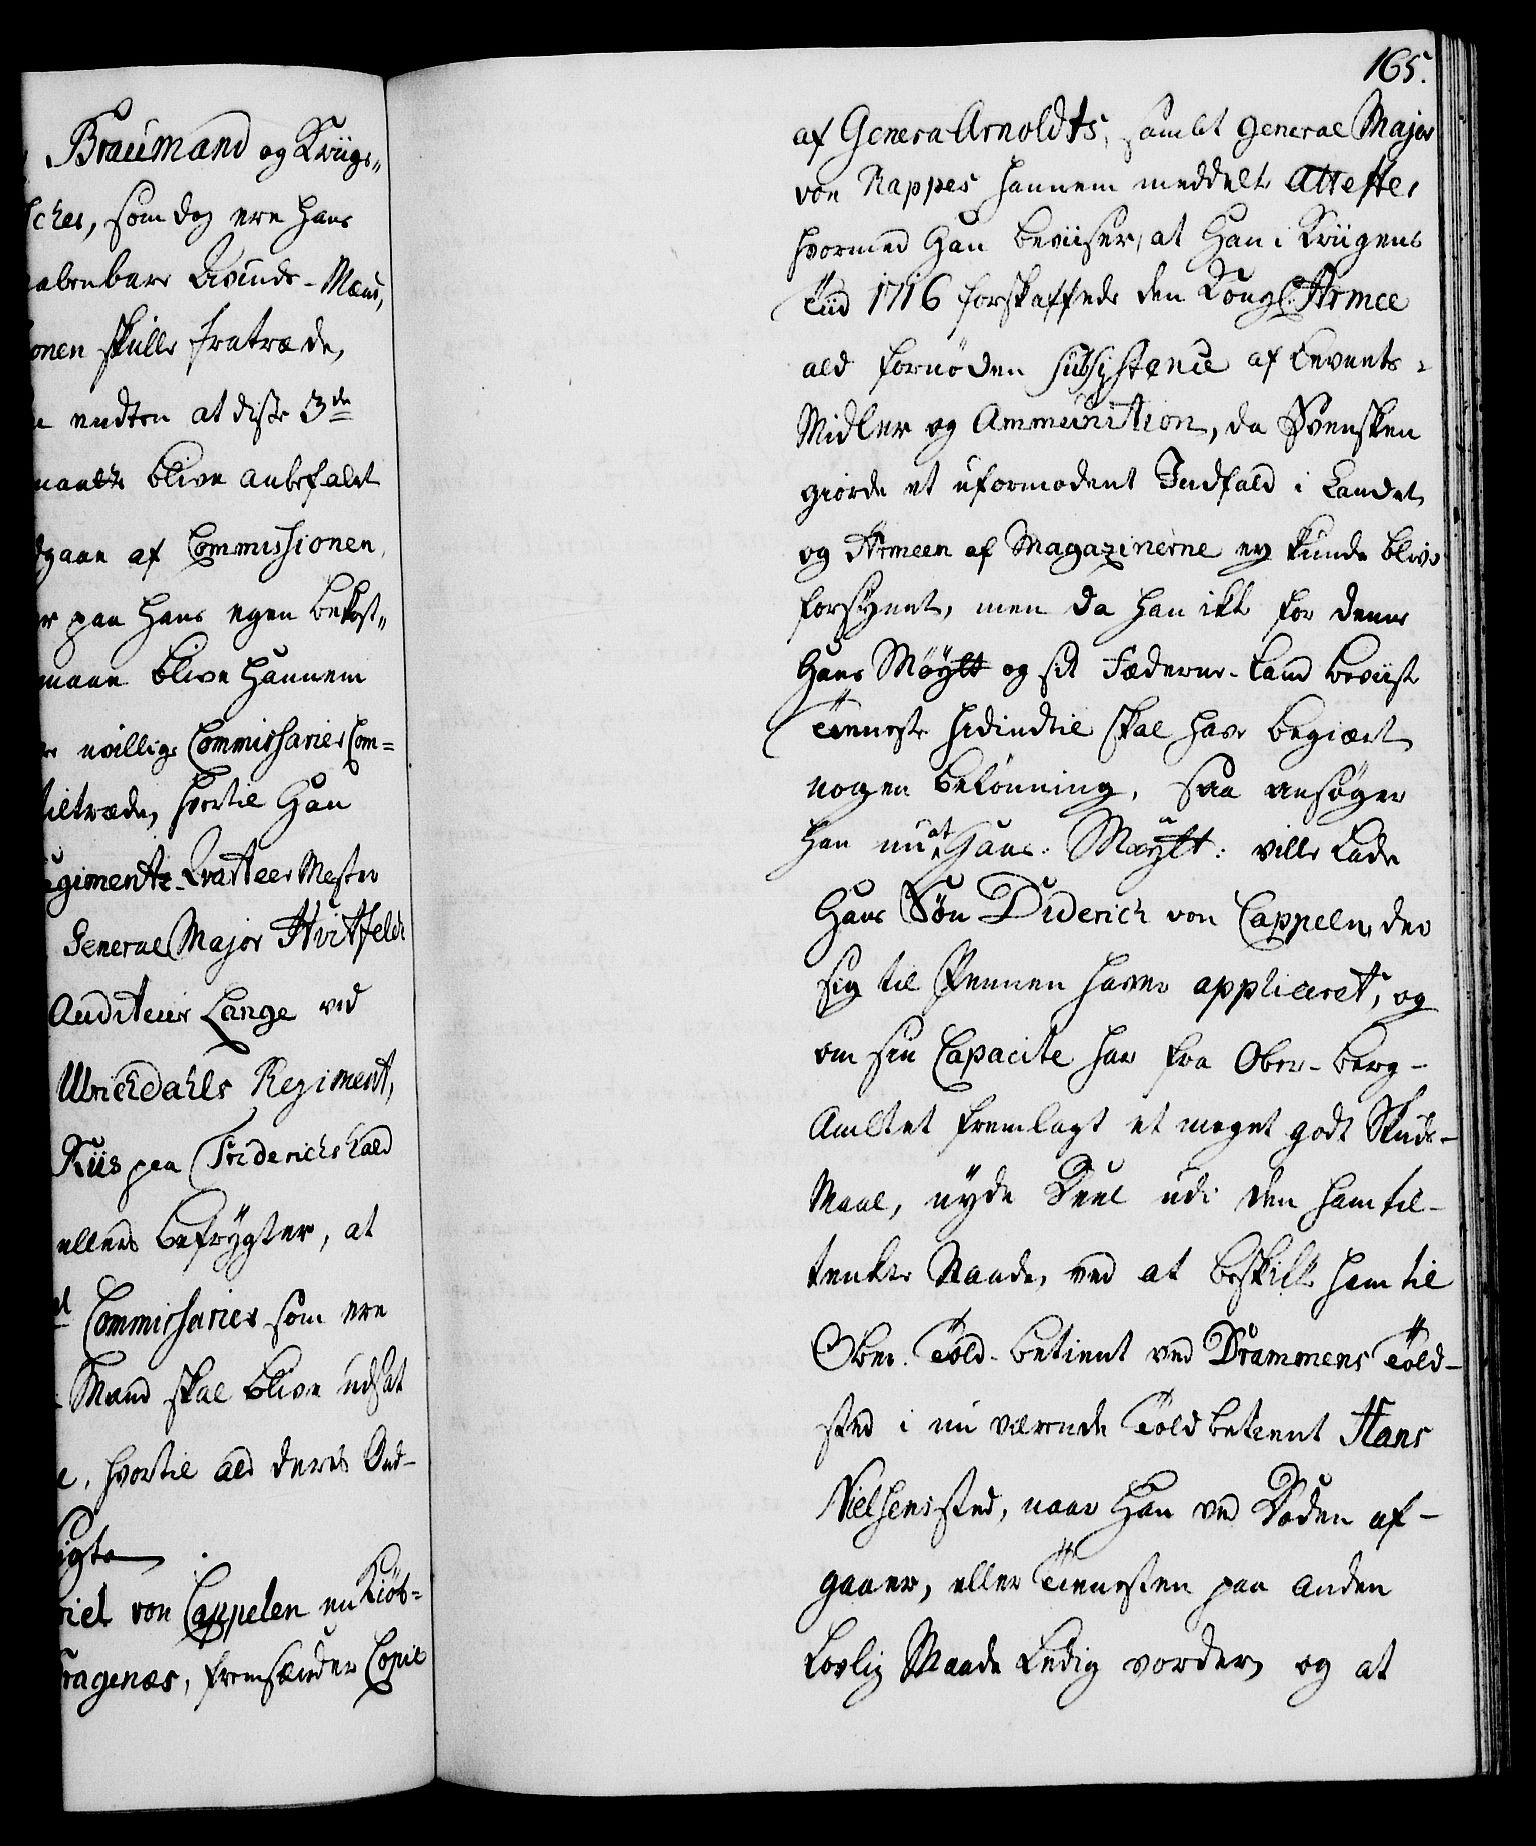 Braumand og Kriigs„
ches, som dog ere hans
aabenbare Avinds-Mænd,
onen skulle fratræde,
endten at disse 3de
blive anbefalet
dgaae af Commissionen,
paa hans egen bekost„
maae blive hannem
uvillige Commissarier Com=
tiltræde, hvortil han
egiments-Qvarteer Mester
General Major Hvitfeldt
Auditeur Lange ved
Ulrichdahls Regiment,
Riis paa Friderichshald
ellers befrygter, at
Commissarier som ere
Mænd skal blive udsat
hvortil ald deres Ond-
igte
riel von Cappelen en Kiöb=
ragenæs, fremsender Copie
165.
af General Arnoldts, samt General Major
von Rappes hannem meddelte Attester
hvormed Han beviiser, at Han i Kriigens
Tiid 1716 forskaffede den Kongl: Armee
ald fornöden subsistence af Levnets=
Midler og Ammunition, da Svensken
giorde et uformodent Indfald i Landet,
og Armeen af Magazinerne ey kunde blive
forsynet, men da han ikke for denne
Hans Maytt og sit Fæderne-Land beviiste
Tieneste hidindtil skal have begiært
nogen belönning, saa ansöger
han nu at Hans Maytt: ville lade
Hans Sön Diderich von Cappelen, der
sig til Pennen haver appliceret, og
om sin Capacite har fra Ober-Berg-
Amtet fremlagt et meget godt Skuds-
Maal, nyde Deel udi den ham til-
tenkte Naade, ved at beskikke ham til
Ober-Told-betient ved Drammens Told-
sted i nu værende Toldbetient Hans
Nielsens sted, naar Han ved Döden af-
gaaer, eller Tienesten paa anden
Lovlig Maade Ledig vorder, og at